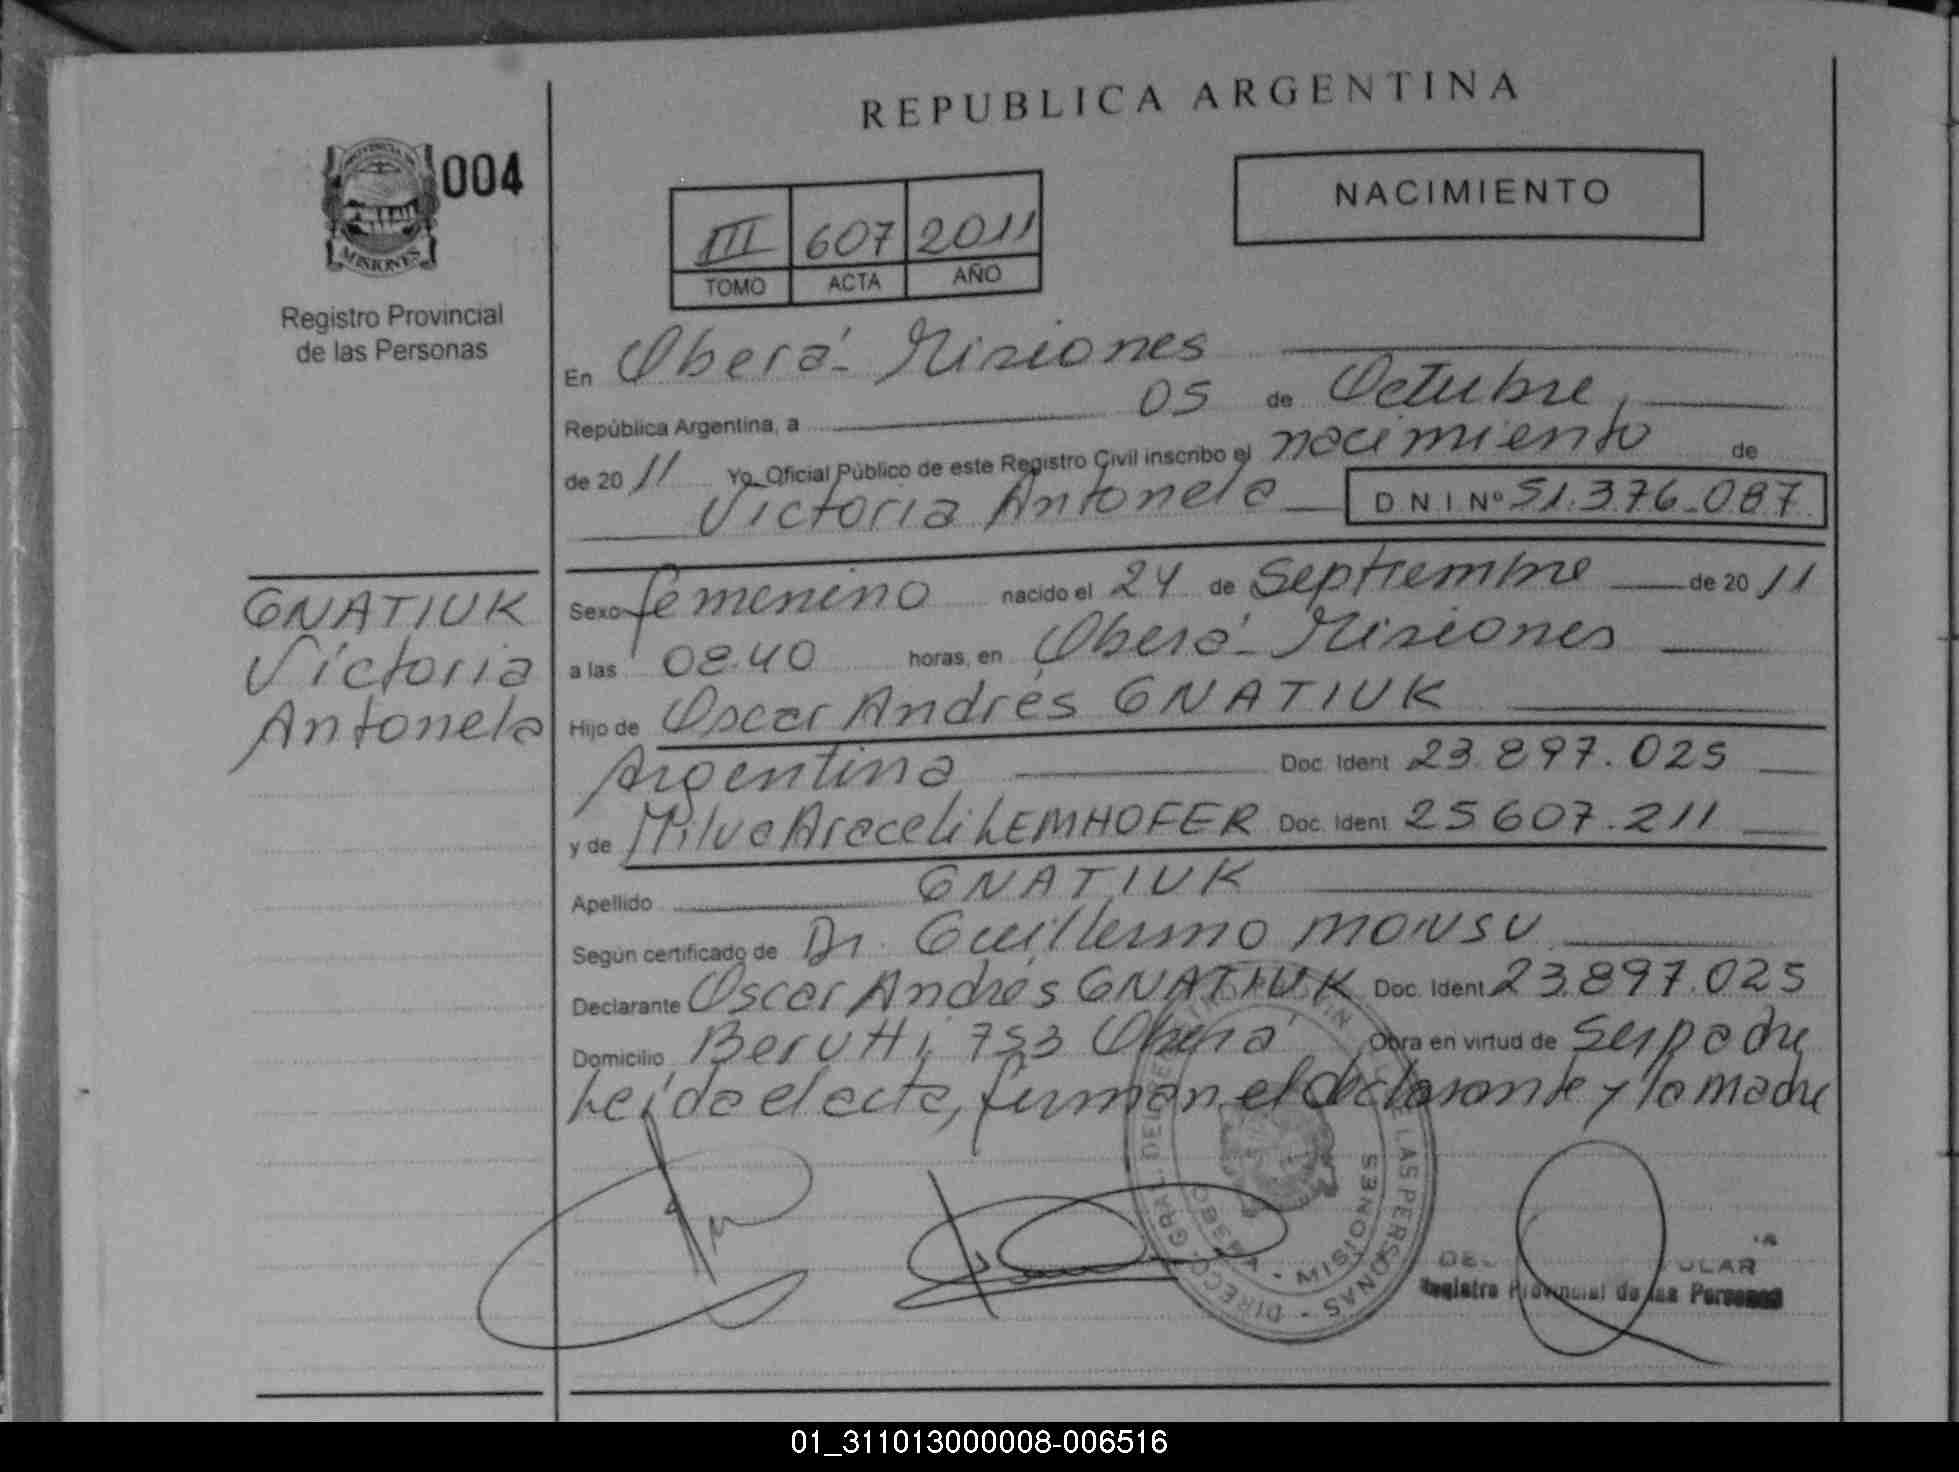 REPUBLICA ARGENTINA
PROVINCIA DE
MISIONES
004
NACIMIENTO
III 607 2011
TOMO ACTA AÑO
Registro Provincial
de las Personas
En Oberá - Misiones
República Argentina, a 05 de Octubre,
de 2011 Yo, Oficial Público de este Registro Civil inscribo el nacimiento de
Victoria Antonela DNI Nº 51.376.087
GNATIUK
Victoria
Antonela
Sexo femenino nacido el 24 de Septiembre de 2011
a las 08.40 horas, en Oberá - Misiones
Hijo de Oscar Andrés GNATIUK
Argentina Doc. Ident 23.897.025
y de Milva Araceli LEMHOFER Doc. Ident 25607.211
Apellido GNATIUK
Según certificado de Dr. Guillermo MONSU
Declarante Oscar Andrés GNATIUK Doc. Ident 23.897.025
Domicilio Berutti 753 Oberá Obra en virtud de Ser padre
Leída el acta, firman el declarante y la madre
LAS PERSONAS - DIRECC. GRAL. DEL
MISIONES
Registro Provincial de las Personas
01_311013000008-006516